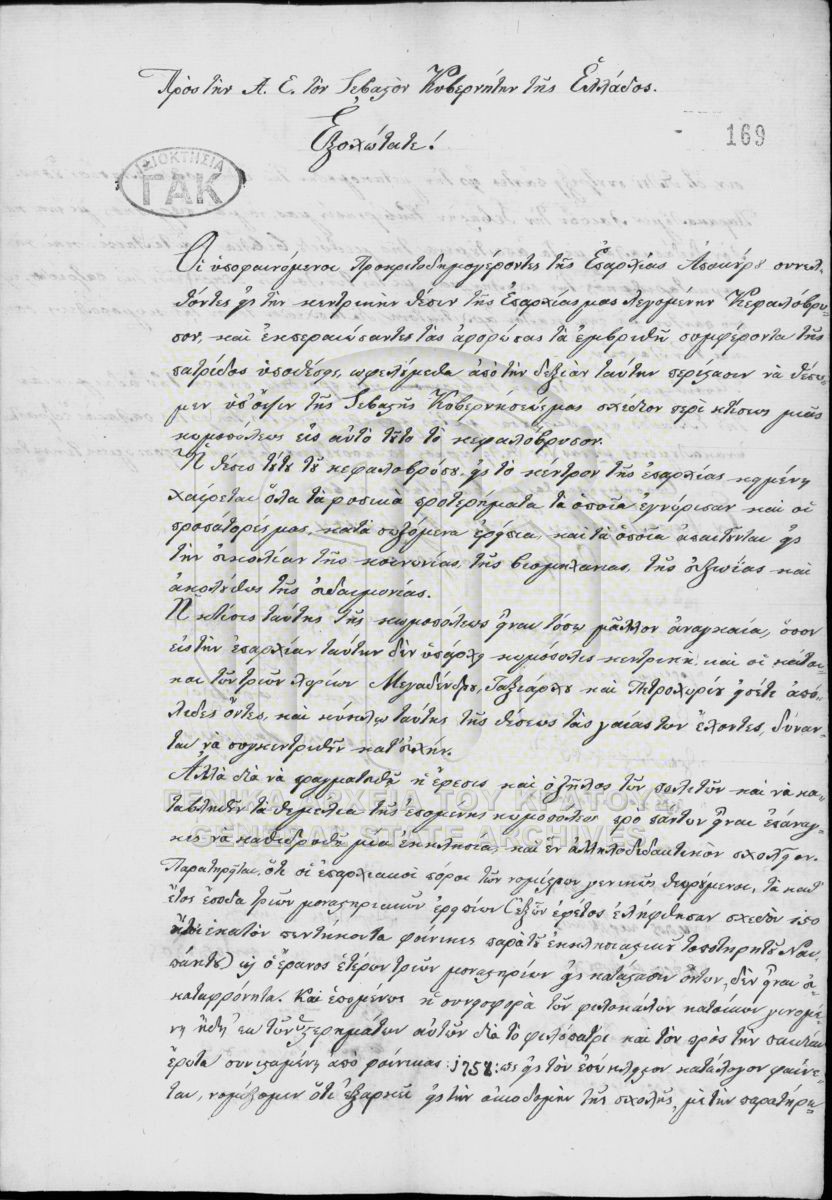 Πρὸς τὴν Α. Ε. τὸν Σεβαστὸν Κυβερνήτην τῆς Ἑλλάδος.
Ἐξοχώτατε!
169
ΙΔΙΟΚΤΗΣΙΑ
ΓΑΚ
Οἱ ὑποφαινόμενοι Προκριτοδημογέροντες τῆς Ἐπαρχίας Ἀποκούρου συνελ-
θόντες εἰς τὴν κεντρικὴν θέσιν τῆς Ἐπαρχίας μας λεγομένην Κεφαλόβρυ-
σον, καὶ ἐκπεραιώσαντες τὰς ἀφορώσας τὰ ἐμβριθῆ συμφέροντα τῆς
πατρίδος ὑποθέσεις, ὠφελήμεθα ἀπὸ τὴν δεξιὰν ταύτην περίστασιν νὰ θέσω-
μεν ὑπ' ὄψιν τῆς Σεβαστῆς Κυβερνήσεώς μας σχέδιον περὶ κτίσεως μιᾶς
κωμοπόλεως εἰς αὐτὸ τοῦτο τὸ κεφαλόβρυσον.
Ἡ θέσις τούτου τοῦ κεφαλοβρύσου εἰς τὸ κέντρον τῆς ἐπαρχίας κειμένη
χαίρεται ὅλα τὰ φυσικὰ προτερήματα τὰ ὁποῖα ἐγνώρισαν καὶ οἱ
προπάτορές μας, κατὰ σωζόμενα ἐρείπια, καὶ τὰ ὁποῖα ἀπαιτοῦνται εἰς
τὴν εὐκολίαν τῆς κοινωνίας, τῆς βιομηχανίας, τῆς εὐζωίας καὶ
ἀκολούθως τῆς εὐδαιμονίας.
Ἡ κτίσις ταύτης τῆς κωμοπόλεως εἶναι τόσῳ μᾶλλον ἀναγκαία, ὅσον
εἰς τὴν ἐπαρχίαν ταύτην δὲν ὑπάρχει κωμόπολις κεντρική, καὶ οἱ κάτοι-
κοι τῶν τριῶν χωρίων Μεγαδένδρου, Ταξιάρχου καὶ Πετροχωρίου ἀπό-
λιδες ὄντες, καὶ κύκλῳ ταύτης τῆς θέσεως τὰς γαίας των ἔχοντες, δύναν-
ται νὰ συγκεντρωθοῦν κατ' εὐχήν.
Ἀλλὰ διὰ νὰ πραγματωθῇ ἡ ἔφεσις καὶ ὁ ζῆλος τῶν πολιτῶν καὶ νὰ κα-
ταβληθοῦν τὰ θεμέλια τῆς ἑπομένης κωμοπόλεως πρὸ πάντων εἶναι ἐπάναγ-
κες νὰ καθιδρυθῇ μία ἐκκλησία, καὶ ἓν ἀλληλοδιδακτικὸν σχολεῖον.
Παρατηρεῖται, ὅτι οἱ ἐπαρχιακοὶ πόροι τῶν νομίμων γενικῶς θεωρούμενοι, τὰ κατ'
ἔτος ἔσοδα τριῶν μοναστηριακῶν ἐρειπίων (ἐξ ὧν ἐφέτος ἐλήφθησαν σχεδὸν 150
ἤτοι ἑκατὸν πεντήκοντα φοίνικες παρὰ τοῦ ἐκκλησιαστικοῦ τοποτηρητοῦ Ναυ-
πάκτου) ὁ ἔρανος ἑτέρων τριῶν μοναστηρίων εἰς κατάστασιν ὄντων, δὲν εἶναι εὐ-
καταφρόνητα. Καὶ ἑπομένως ἡ συνεισφορὰ τῶν φιλοκάλων κατοίκων γινομέ-
νη ἤδη ἐκ τῶν ὑστερημάτων αὐτῶν διὰ τὸ φιλόπατρι καὶ τὸν πρὸς τὴν παιδείαν
ἔρωτα συνισταμένη ἀπὸ φοίνικας :1758: ὡς εἰς τὸν ἐσώκλειστον κατάλογον φαίνε-
ται, νομίζομεν ὅτι ἐξαρκεῖ εἰς τὴν οἰκοδομὴν τῆς σχολῆς, μὲ τὴν παρατήρη-
ΓΕΝΙΚΑ ΑΡΧΕΙΑ ΤΟΥ ΚΡΑΤΟΥΣ
GENERAL STATE ARCHIVES